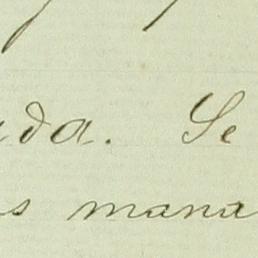 ada. Se
s mana